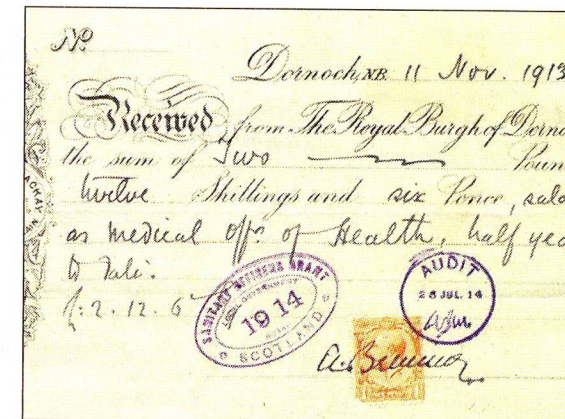 No
Dornoch, N.B. 11 Nov. 1913
Received from The Royal Burgh of Dorno
the sum of Two Poun
twelve Shillings and six Pence, sala
as medical offr. of Health, half yea
to date.
£: 2. 12. 6
SANITARY OFFICERS GRANT
LOCAL GOVERNMENT
1914
SCOTLAND
AUDIT
28 JUL. 14
ACKAY